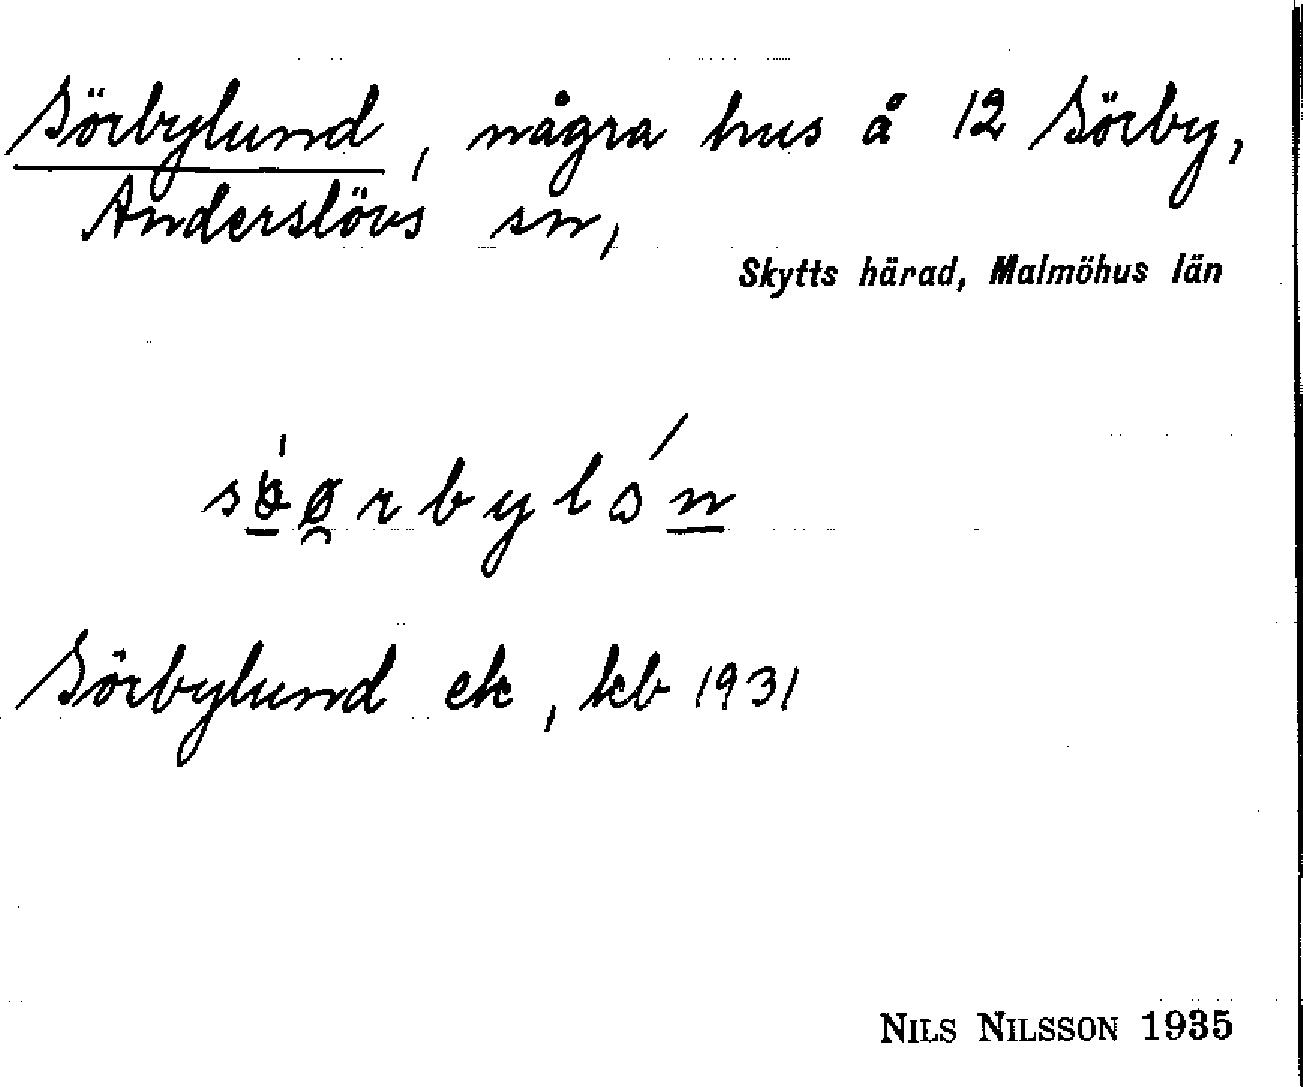 Sörbylund, några hus å 12 Sörby,
Anderslövs sn,
Skytts härad, Malmöhus län
Sörbylund ek, kb 1931
NILS NILSSON 1935